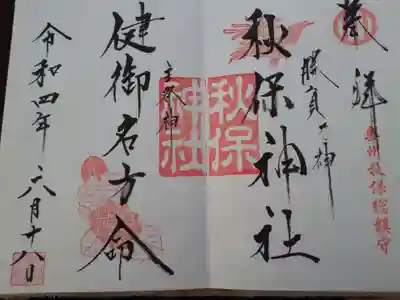 奉拝
奥州秋保総鎮守
勝負の神
秋保神社
秋保神社
主祭神
健御名方命
令和四年六月十八日